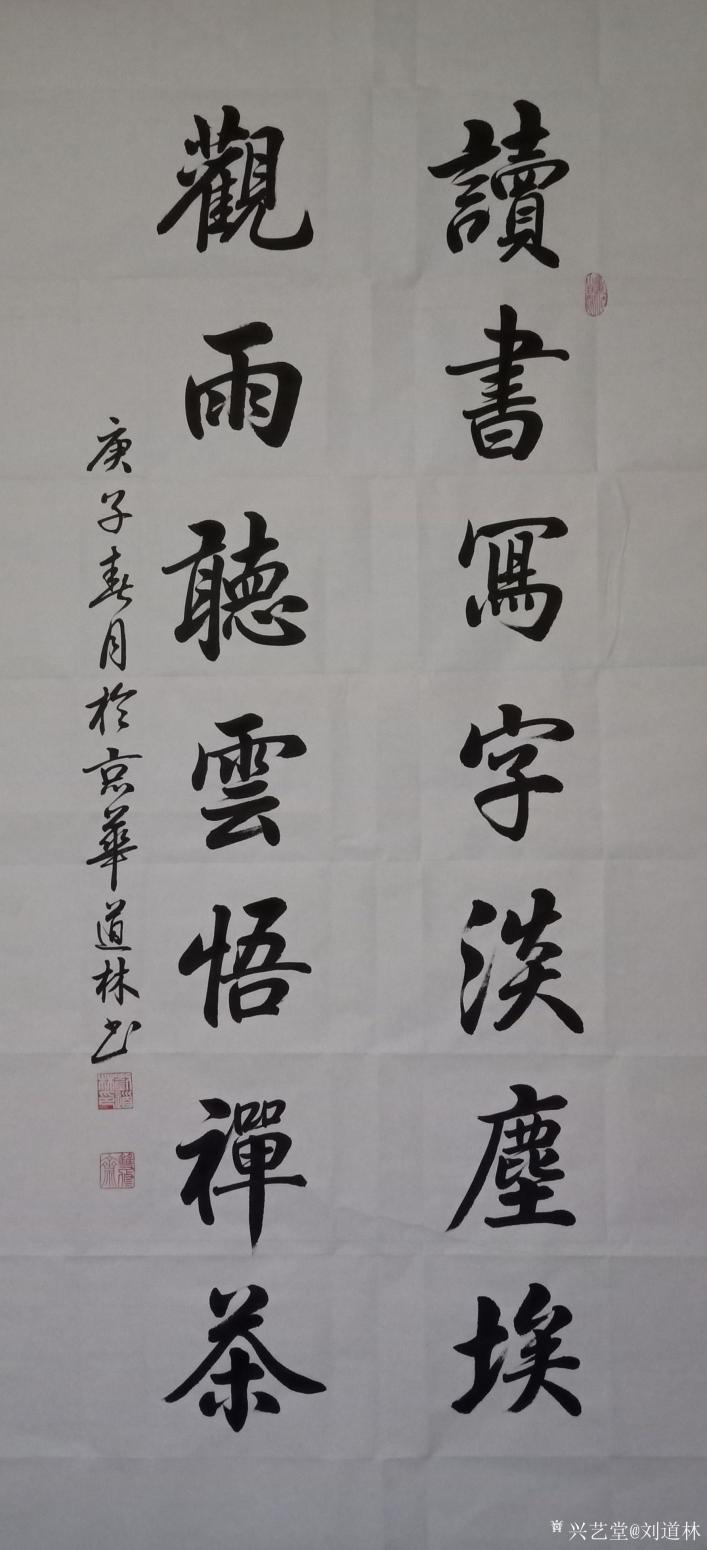 讀書寫字淡塵埃
觀雨聽雲悟禪茶
庚子春月於京華道林书
兴艺堂@刘道林